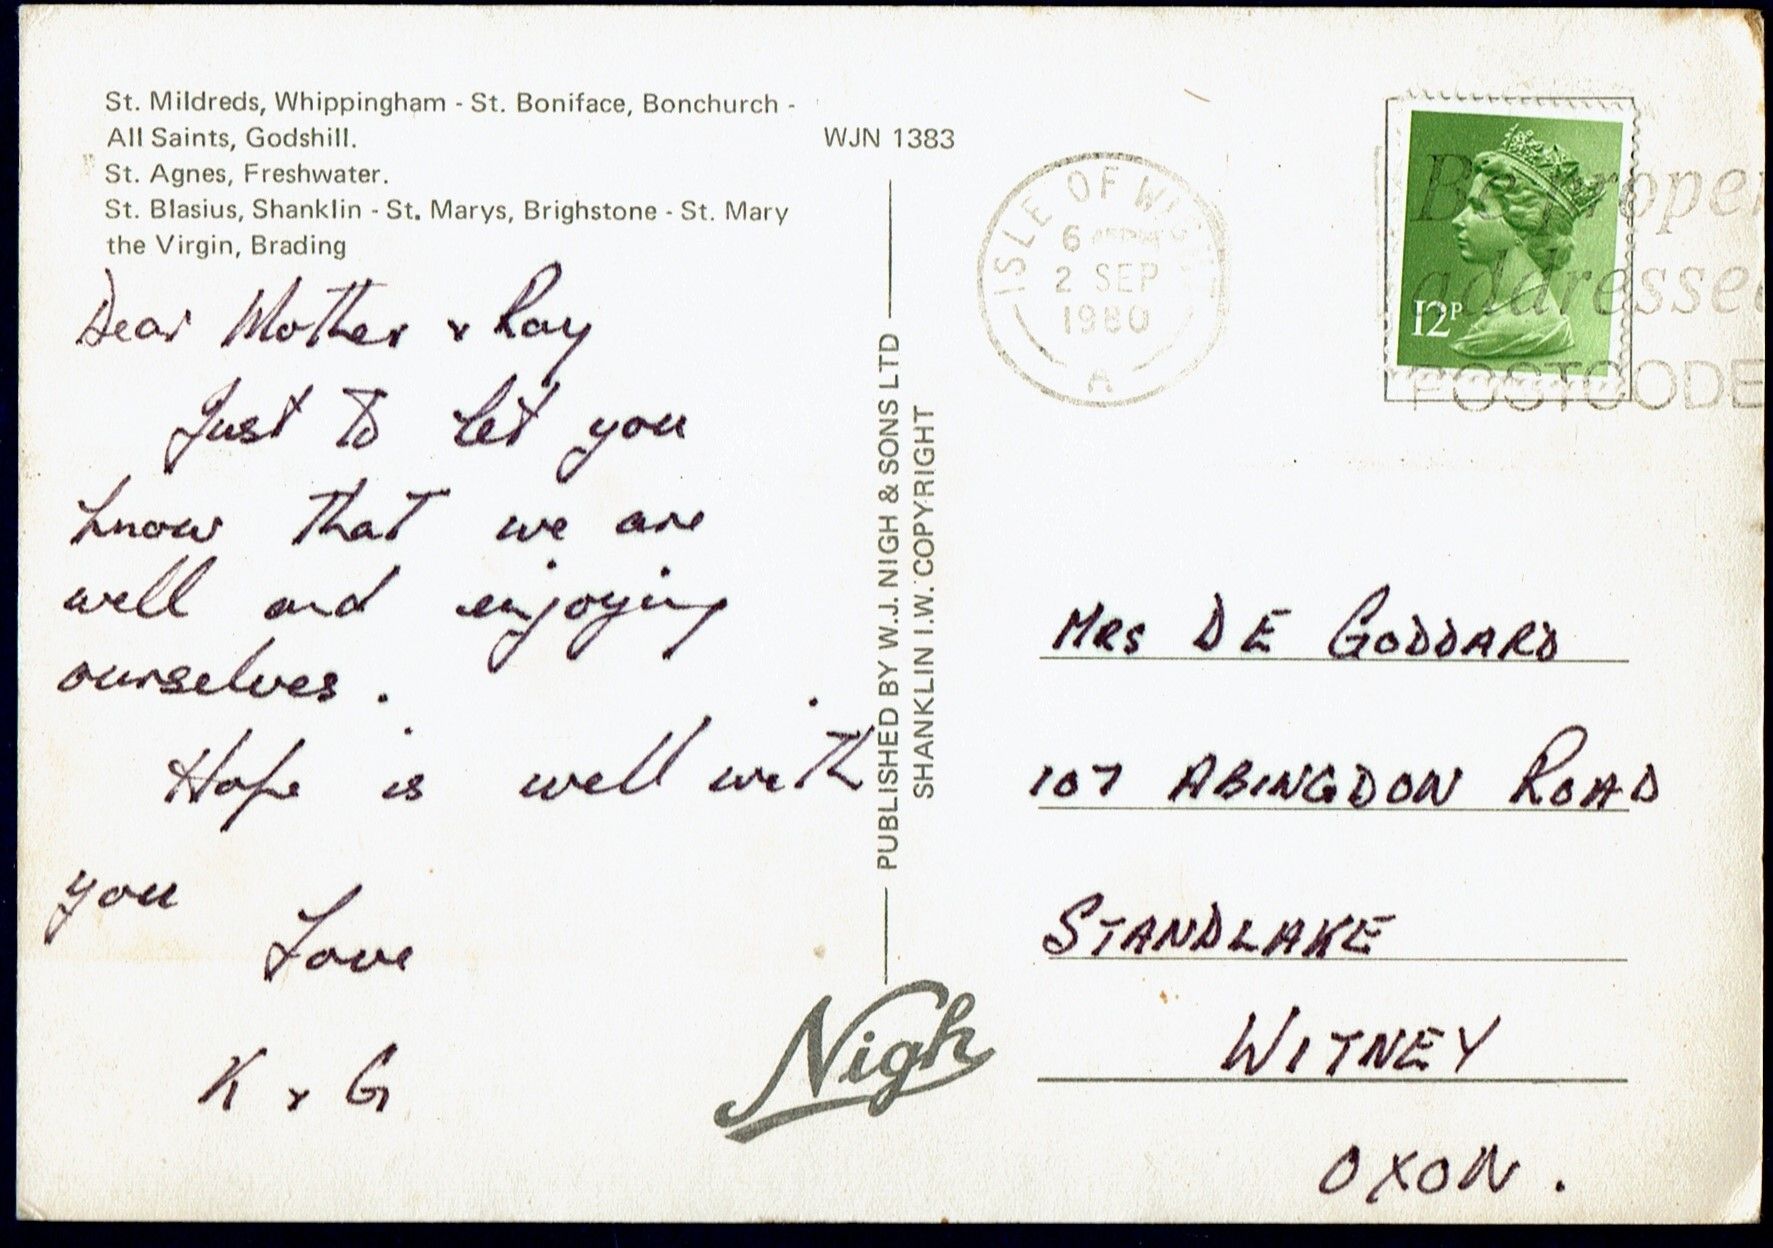 St. Mildreds, Whippingham - St. Boniface, Bonchurch -
All Saints, Godshill.
St. Agnes, Freshwater.
St. Blasius, Shanklin - St. Marys, Brighstone - St. Mary
the Virgin, Brading
WJN 1383
Dear Mother & Ray
Just to let you
know that we are
well and enjoying
ourselves.
Hope is well with
you
Love
K & G
PUBLISHED BY W.J. NIGH & SONS LTD
SHANKLIN I.W. COPYRIGHT
Nigh
ISLE OF WIGHT
6
2 SEP
1980
A
Be proper
addresse
POSTCODE
12P
MRS D E GODDARD
107 ABINGDON ROAD
STANDLAKE
WITNEY
OXON.